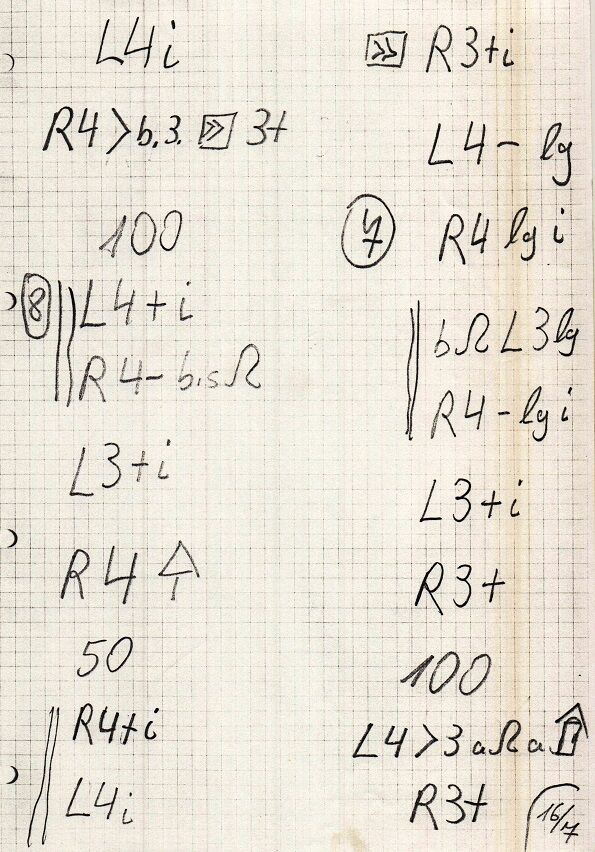 L4i
R4>b.3. » 3+
100
8 L4+i
R4-b.sΩ
L3+i
R4
50
R4+i
L4i
» R3+i
L4- lg
7 R4 lg i
bΩ L3lg
R4-lg i
L3+i
R3+
100
L4>3 aΩ a
R3+
16/7